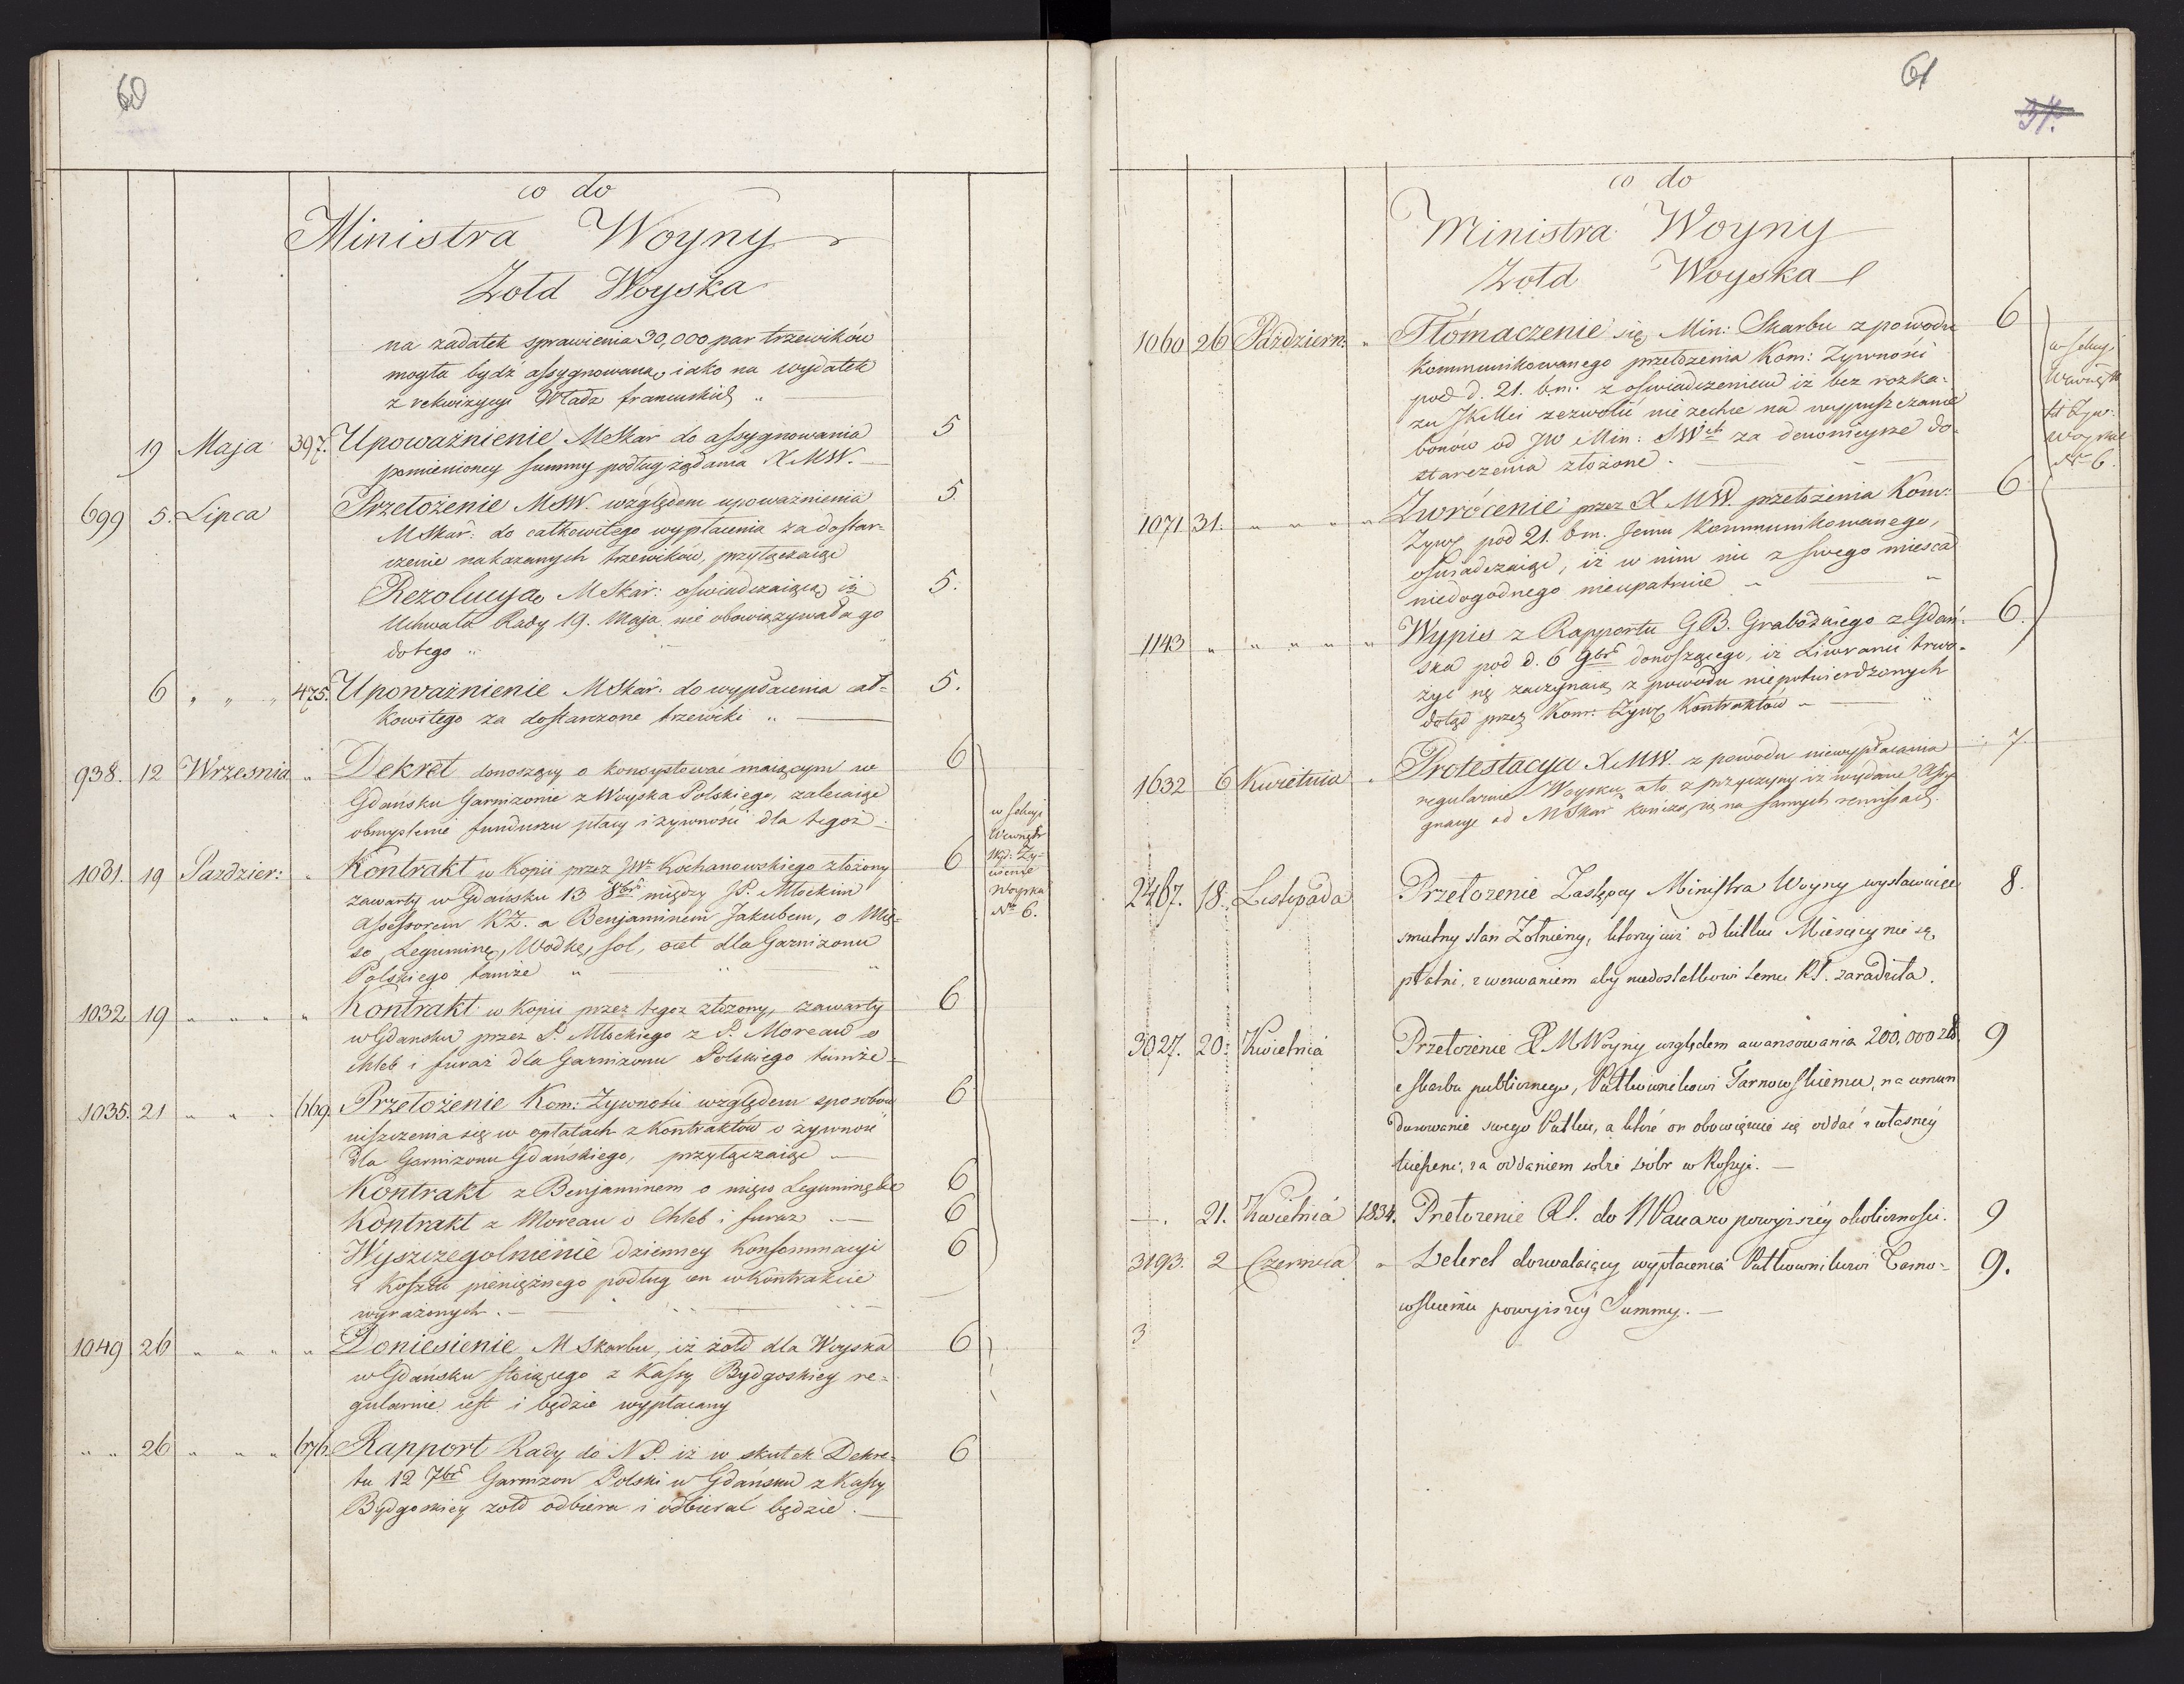 60
co do
Ministra Woyny
Zołd Woyska
na zadatek sprawienia 30,000 par trzewików
mogła bydź assygnowana, iako na wydatek
z rekwizycyi Władz francuskich „
19 Maja 397. Upoważnienie MSkar: do assygnowania 5
pomienioney summy podług żądania XMW.
699 5. Lipca Przełożenie MSW. względem upoważnienia 5.
MSkar: do całkowitego wypłacenia za dostar-
czenie nakazanych trzewików, przyłączaiąc
Rezolucyą MSkar: oświadczaiącą iż 5.
Uchwała Rady 19. Maja nie obowiązywała go
do tego „
6 „ „ „ 475. Upoważnienie MSkar: do wypłacenia cał- 5.
kowitego za dostarczone trzewiki „
938. 12 Wrzesnia „ Dekret donoszący o konsystować maiącym w 6
Gdańsku Garnizonie z Woyska Polskiego, zalecaiąc
obmyślenie funduszu płacy i żywności dla tegoż
w sekcyi
Wewnętr
Wyd: Ży-
wienie
Woyska
Nr 6.
1031. 19 Pazdzier: „ Kontrakt w kopii przez JW. Kochanowskiego złożony 6
zawarty w Gdańsku 13 8bra między JP. Młockim
Assessorem KŻ. a Benjaminem Jakubem, o Mię-
so, Leguminę, Wodkę, sol, ocet dla Garnizonu
Polskiego tamże „
1032 19 „ „ „ „ Kontrakt w kopii przez tegoż złożony, zawarty 6
w Gdansku przez P. Młockiego z P. Moreau o
chleb i furaż dla Garnizonu Polskiego tamże
1035. 21 „ „ „ 669. Przełożenie Kom: Żywności względem sposobow 6
uiszczenia się w opłatach z Kontraktów o żywnosć
dla Garnizonu Gdańskiego, przyłączaiąc
Kontrakt z Benjaminem o mięso Leguminę 6
Kontrakt z Moreau o Chleb i furaz 6
Wyszczegolnienie dzienney Konsommacyi 6
i Kosztu pieniężnego podług cen w Kontrakcie
wyrażonych.
1049 26 „ „ „ „ Doniesienie M Skarbu, iż żołd dla Woyska 6
w Gdańsku stoiącego z Kassy Bydgoskiey re-
gularnie iest i będzie wypłacany
„ „ 26 „ „ „ 676. Rapport Rady do NP. iż w skutek Dekre- 6
tu 12 7bra Garnizon Polski w Gdańsku z Kassy
Bydgoskiey zołd odbiera i odbierać będzie.
61
31.
co do
Ministra Woyny
Zołd Woyska
1060 26 Październ: „ Tłómaczenie się Min: Skarbu z powodu 6
kommunikowanego przełożenia Kom: Zywności
pod d. 21. b.m. z oświadczeniem iż bez rozka-
zu zezwolić nie zechce na wypuszczanie
bonów od JW Min: za do-
starczenia złożone.
w sekcyi
Wewnętr
tit Żyw:
Woyska
Nr 6.
1071 31. „ „ „ „ Zwrócenie przez X MW. przełożenia Kom: 6
Żyw: pod 21. b.m. Jemu kommunikowanego,
oświadczaiąc, iż w nim nic z swego miesca
niedogodnego nieupatruie „
1143 „ „ „ „ „ Wypis z Rapportu GB. Grabowskiego z Gdań- 6.
ska pod d. 6 9bra donoszącego, iż Liweranci trwo-
żyć się zaczynaią z powodu niepotwierdzonych
dotąd przez Kom: Żyw: Kontraktów „
1632 6 Kwietnia „ Protestacya XMW. z powodu niewypłacania 7.
regularnie Woysku, a to z przyczyny iż wydane Assy-
gnacye od MSkar: kończą się na samych remissach.
2467. 18. Listopada Przełożenie Zastępcy Ministra Woyny wystawuiące 8.
smutny stan Żołnierzy, którzy iuż od kilku Miesięcy nie są
płatni, z wezwaniem aby niedostatkowi temu RS. zaradziła.
3027. 20: Kwietnia Przełożenie X MWoyny względem awansowania 200,000 zł 9
z skarbu publicznego, Pułkownikowi Tarnowskiemu, na umun
durowanie swego Pułku, a które on obowięzuie się oddać z własney
kieszeni, za oddaniem sobie dóbr w Rossyi.
—. 21. Kwietnia 1834. Przełożenie RS. do NPana w powyższey okoliczności. 9
3193. 2 Czerwca „ Dekret dozwalaiący wypłacenia Pułkownikowi Tarno- 9.
wskiemu powyższey Summy.
3